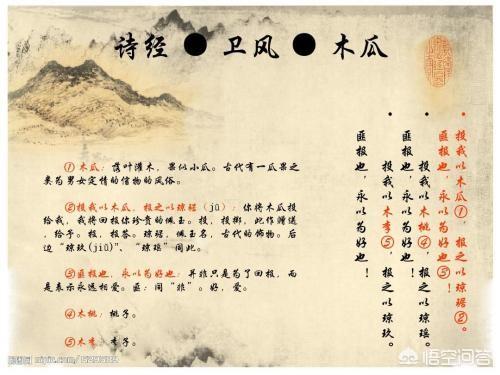 诗经●卫风●木瓜
• 投我以木瓜①,报之以琼琚②。
匪报也,永以为好也③!
• 投我以木桃④,报之以琼瑶。
匪报也,永以为好也!
• 投我以木李⑤,报之以琼玖。
匪报也,永以为好也!
①木瓜:落叶灌木,果似小瓜。古代有一瓜果之
类为男女定情的信物的风俗。
②投我以木瓜,报之以琼琚(jū):你将木瓜投
给我,我将回报你珍贵的佩玉。投,投掷,此作赠送
,给予。报,报答。琼琚,佩玉名,古代的饰物。后
边“琼玖(jiǔ)”、“琼瑶”同此。
③匪报也,永以为好也:并非只是为了回报,而
是表示永远相爱。匪:同“非”。好,爱。
④木桃:桃子。
⑤木李:李子。
悟空问答